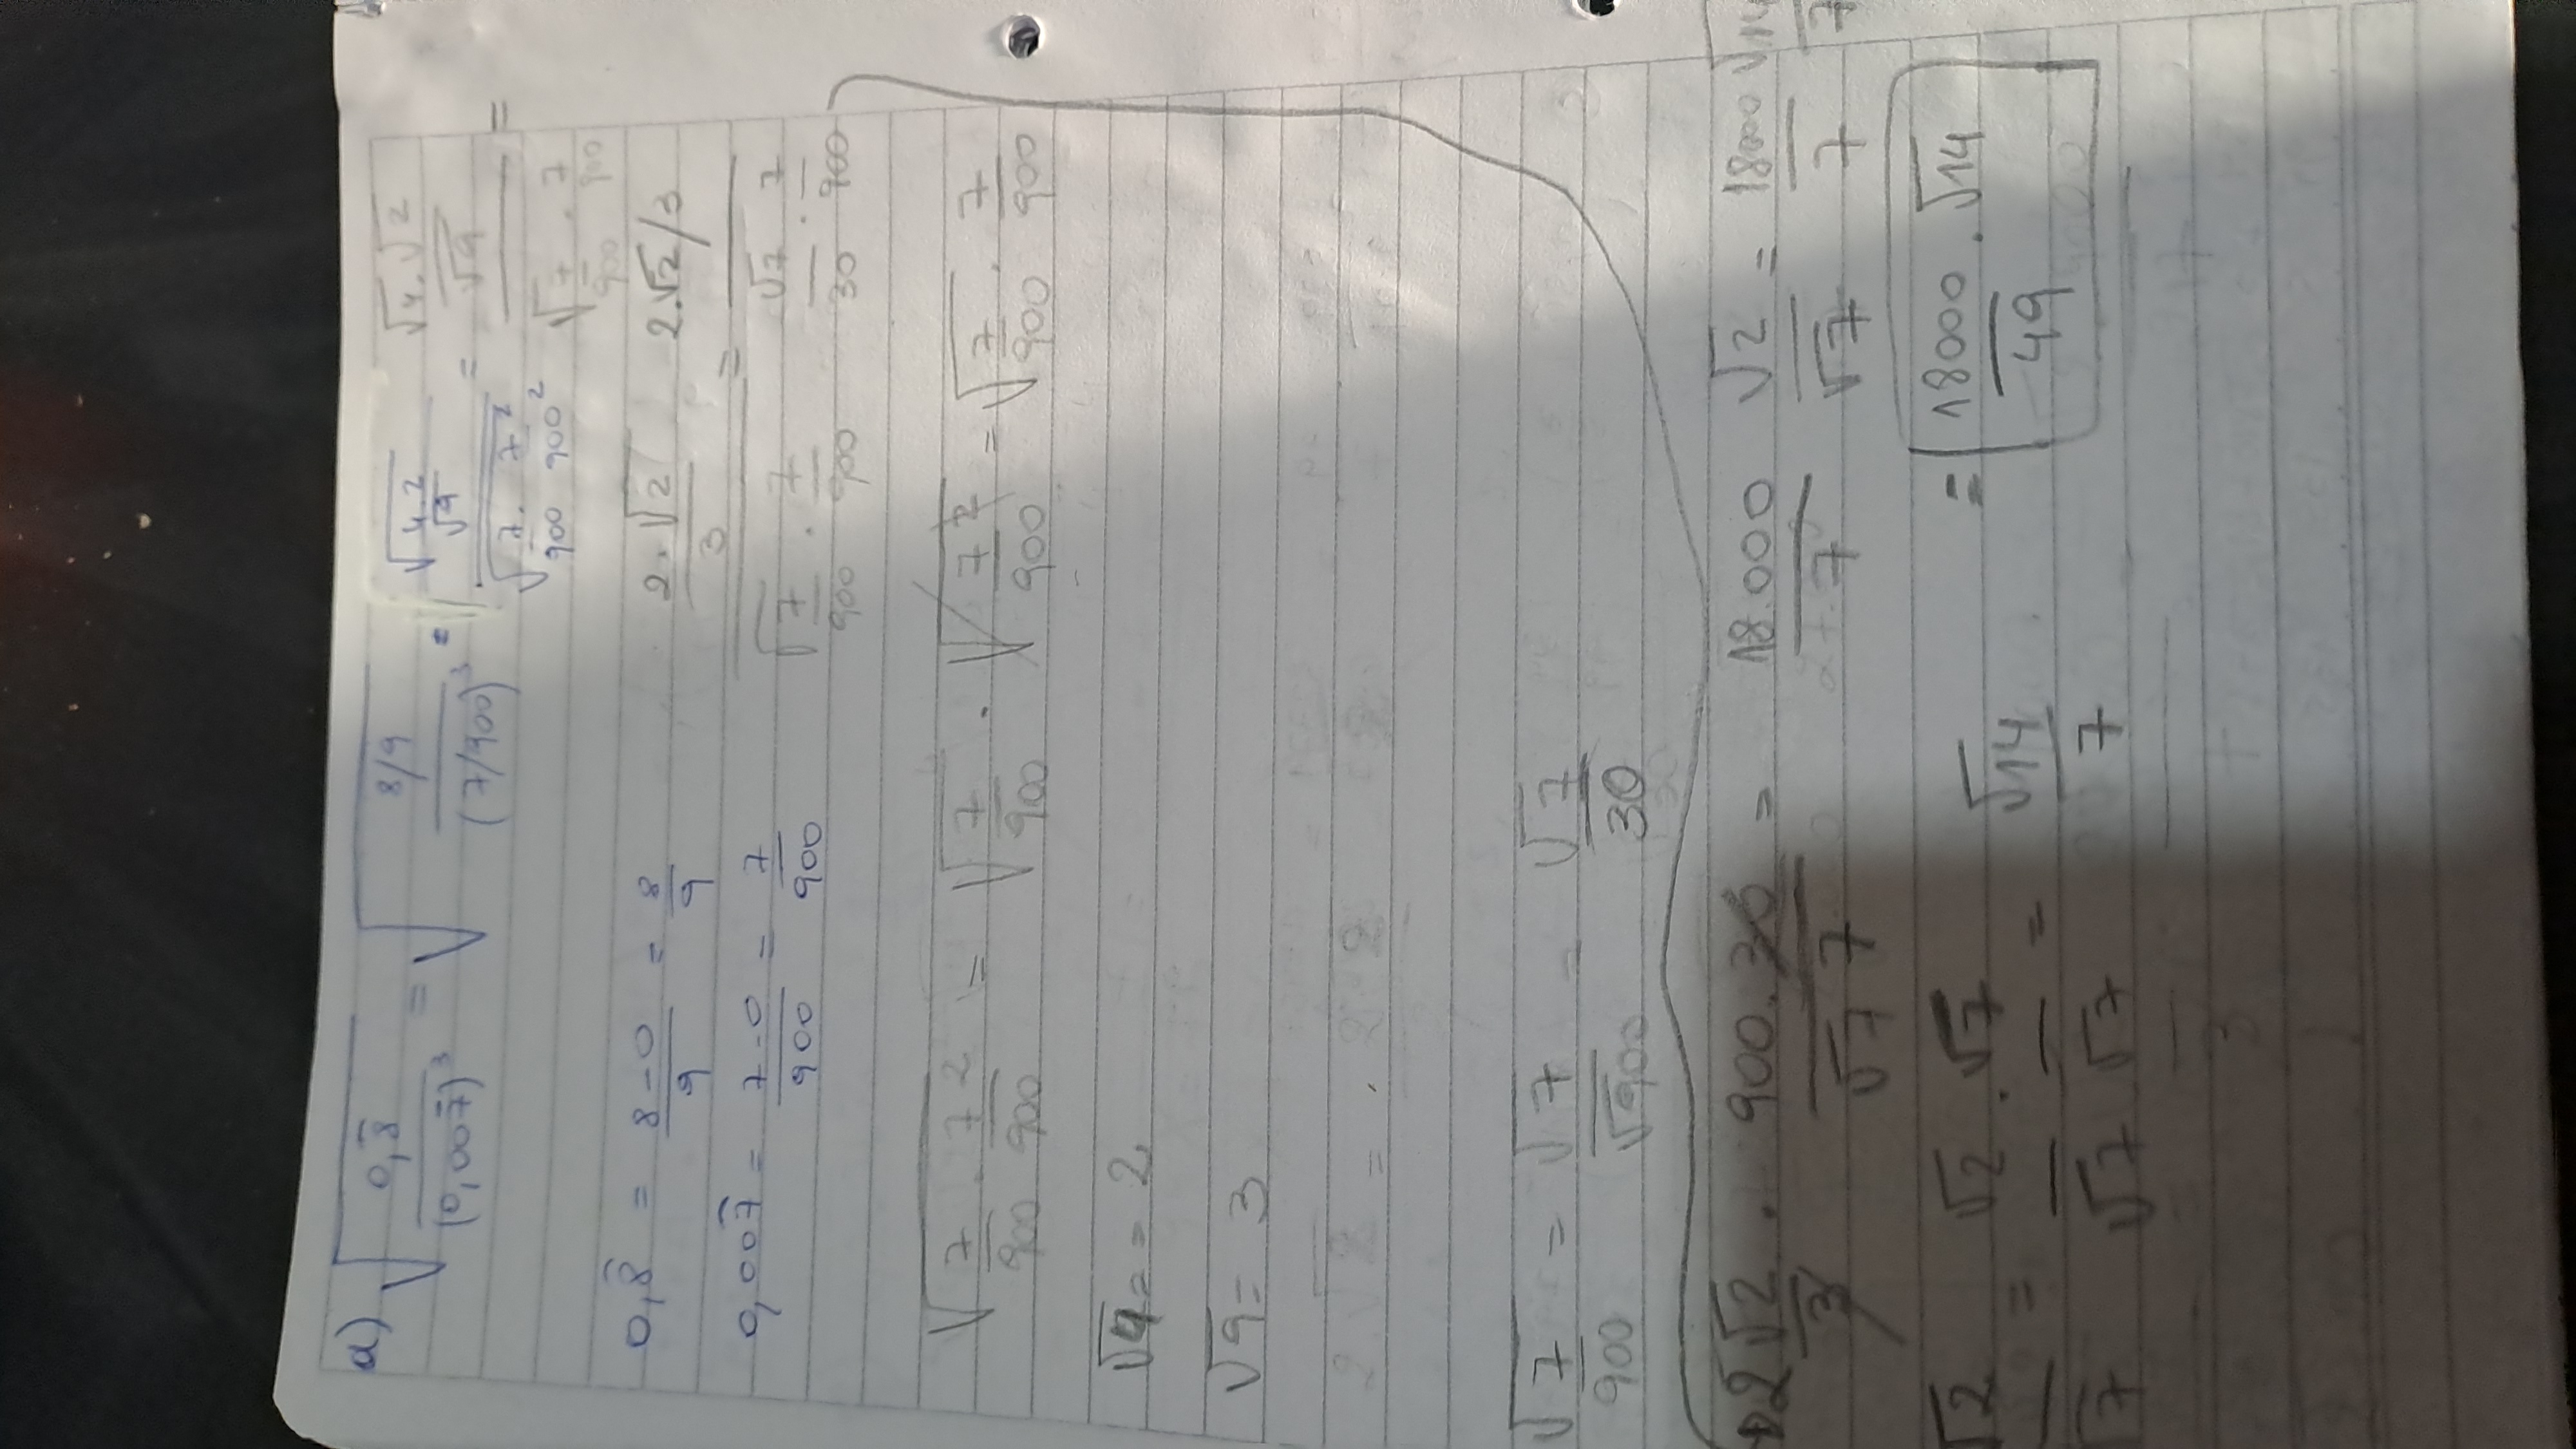 a) √(0,8̂ / (0,007̂)³) = √((8/9) / (7/900)³) = (√(4.2) / √9) / √(7/900 . 7²/900²) = (√4 . √2 / √9) / (√(7/900) . 7/900) =
0,8̂ = (8-0)/9 = 8/9
(2.√2 / 3) / (√(7/900) . 7/900) = (2.√2/3) / (√7/30 . 7/900)
0,007̂ = (7-0)/900 = 7/900
√(7/900 . 7²/900) = √(7/900) . √(7²/900) = √(7/900) . 7/900
√4 = = 2
√9 = 3
√(7/900) = √7/√900 = √7/30
2√2/3 . 900.30/(√7 7) = 18.000/7 √2/√7 = 18000/7 √14/7
√2/√7 = √2/√7 . √7/√7 = √14/7
= 18000/49 . √14